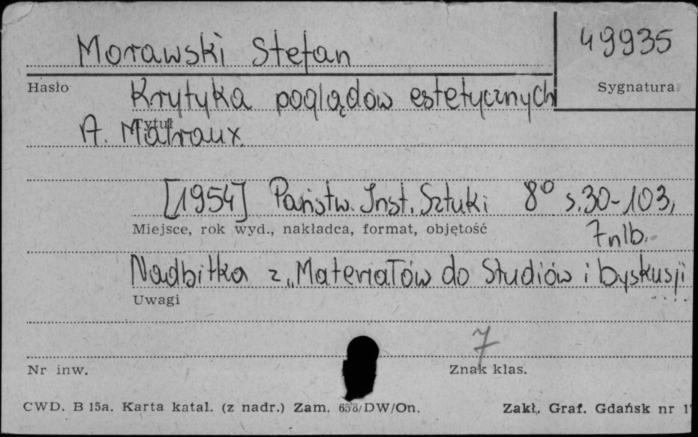 Morawski Stefan
49935
Hasło
Sygnatura
Krytyka poglądów estetycznych
Tytuł
A. Malraux
[1954] Państw. Inst. Sztuki 8° s. 30-103,
Miejsce, rok wyd., nakładca, format, objętość
7 nlb.
Nadbitka z „Materiałów do Studiów i Dyskusji
Uwagi
7
Nr inw.
Znak klas.
CWD. B 15a. Karta katal. (z nadr.) Zam. DW/On.
Zakł. Graf. Gdańsk nr 1